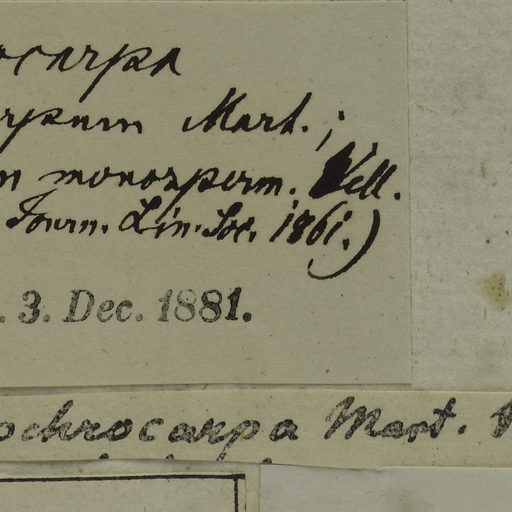 ocarpa
rpum Mart.;
m monosperm. Vell.
Journ. Lin. Soc. 1861.)
. 3. Dec. 1881.
ochrocarpa Mart.